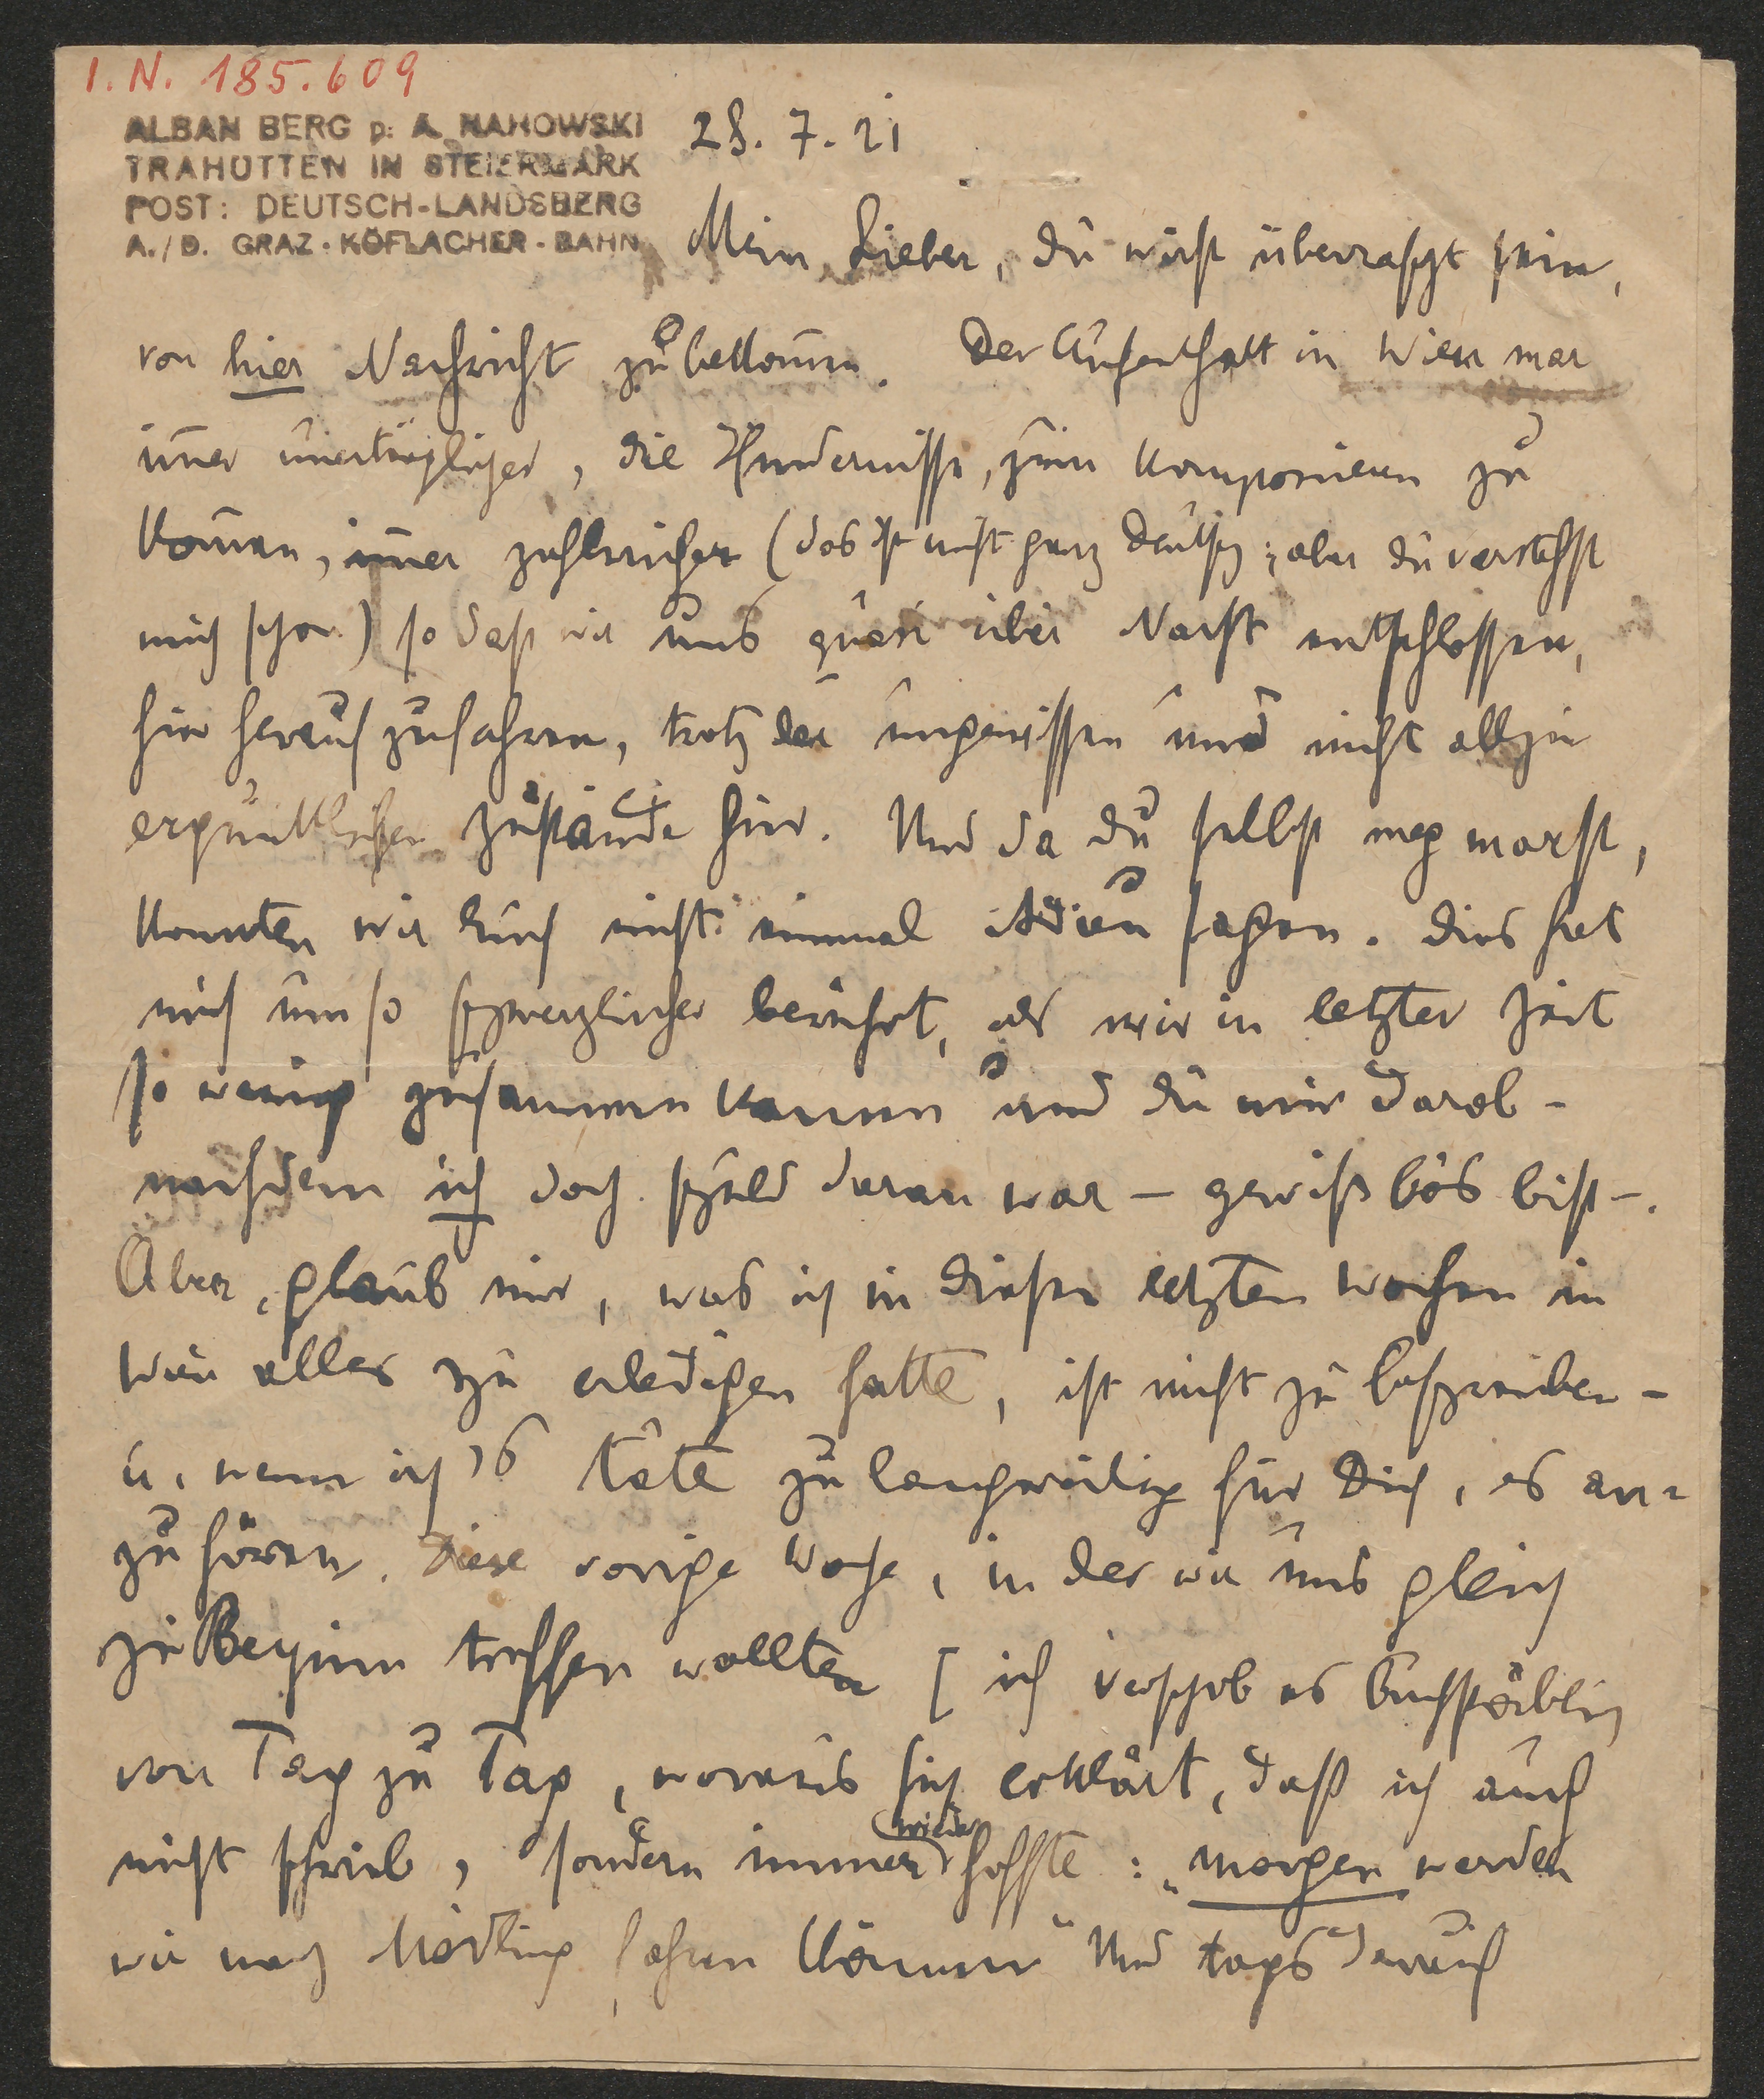 I. N. 185.609
ALBAN BERG p: A. NAHOWSKI
TRAHÜTTEN IN STEIERMARK
POST: DEUTSCH-LANDSBERG
A./D. GRAZ-KÖFLACHER-BAHN
28. 7. 21
Mein Lieber, du wirst überrascht sein,
von hier Nachricht zu bekom̅en. Der Aufenthalt in Wien war
im̅er unerträglicher, die Hindernisse, zum Komponieren zu
kom̅en, im̅er zahlreicher (das ist nicht ganz deutsch; aber du verstehst
mich schon) so daß wir uns quasi über Nacht entschlossen,
hier heraufzufahren, trotz der ungewissen und nicht allzu
erquicklichen Zustände hier. Und da du selbst weg warst,
konnten wir Euch nicht einmal Adieu sagen. Dies hat
mich um so schmerzlicher berührt, als wir in letzter Zeit
so wenig zusammen kamen und du mir darob -
nachdem ich doch schuld daran war - gewiß bös bist -.
Aber, glaub mir, was ich in diesen letzten Wochen in
Wien alles zu erledigen hatte, ist nicht zu beschreiben -
u. wenn ich's täte zu langweilig für Dich, es an-
zuhören. Diese vorige Woche, in der wir uns gleich
zu Beginn treffen wollten [ ich verschob es buchstäblich
von Tag zu Tag, woraus sich erklärt, daß ich auch
nicht schrieb, sondern immer wieder hoffte: „morgen werden
wir nach Mödling fahren können“ Und tags darauf